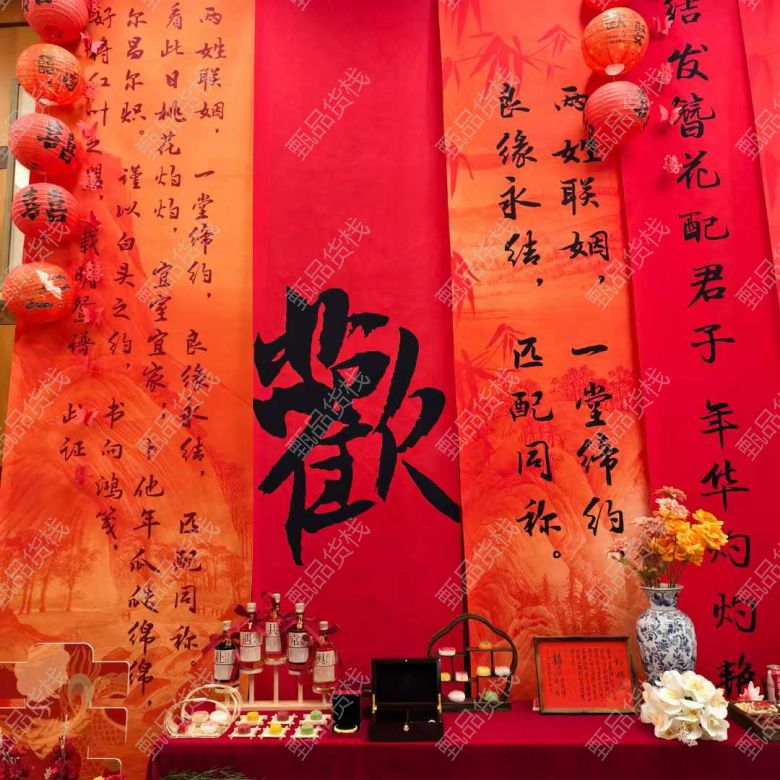 结发簪花配君子 年华灼灼艳
两姓联姻，一堂缔约，
良缘永结，匹配同称。
歡
两姓联姻，一堂缔约，良缘永结，匹配同称。
看此日桃花灼灼，宜室宜家，卜他年瓜瓞绵绵，
尔昌尔炽。谨以白头之约，书向鸿笺，
好将红叶之盟，载明鸳谱。此证
囍
囍
甄品货栈